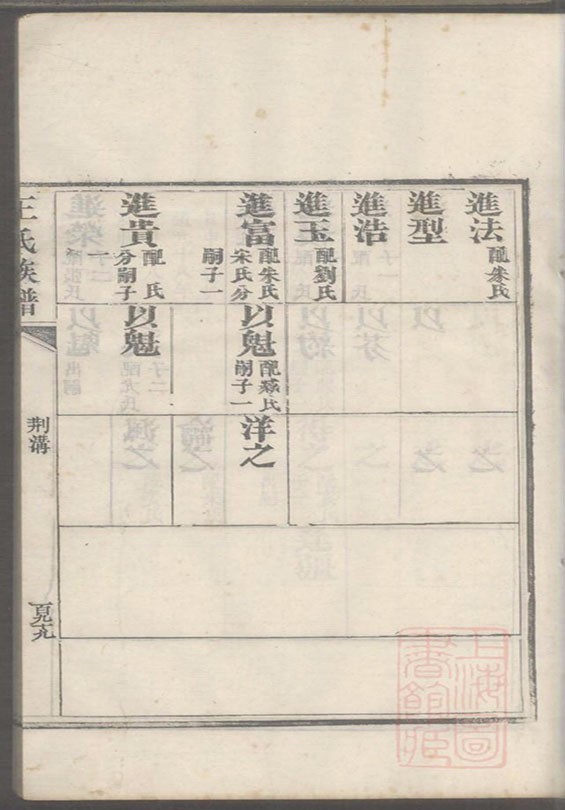 進法 配朱氏
進型
進浩
進玉 配劉氏
進富 配朱氏
宋氏 分
嗣子一
進貴 配 氏
分嗣子
以魁 配蔡氏
嗣子一
以魁
洋之
王氏族譜
荆溝
上海圖
書館藏